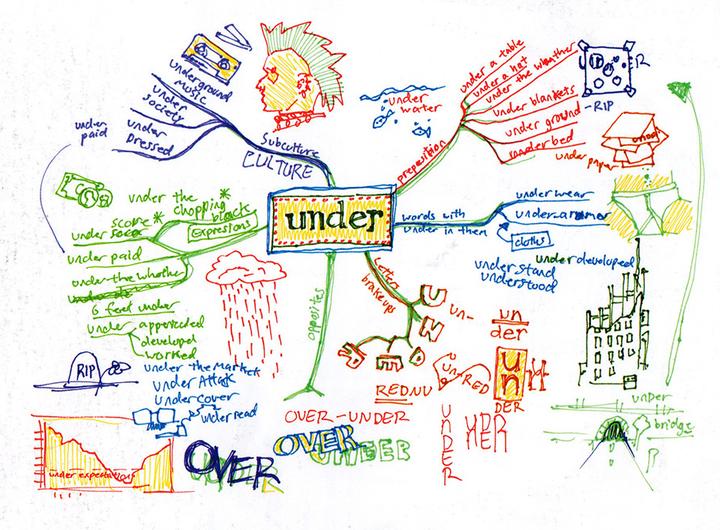 under
Subculture
CULTURE
underground
music
under
society
under
Dressed
under
paid
under
water
preposition
under a table
under a hat
under the weather
under blankets
under ground
-RIP
under bed
under paper
words with
under in them
under wear
under armor
cloths
under stand
understood
under developed
Expressions
under the
chopping
block
under score
under paid
under the whether
6 feet under
under
appreceded
developed
worked
RIP
under the market
under Attak
under cover
under read
under expectations
opposites
OVER-UNDER
OVER
UNDER
OVER
UNDER
letter
breakups
U
N
D
E
R
UN-
un
der
REDNU
un-RED
un
DER
UNDER
HER
under
bridge